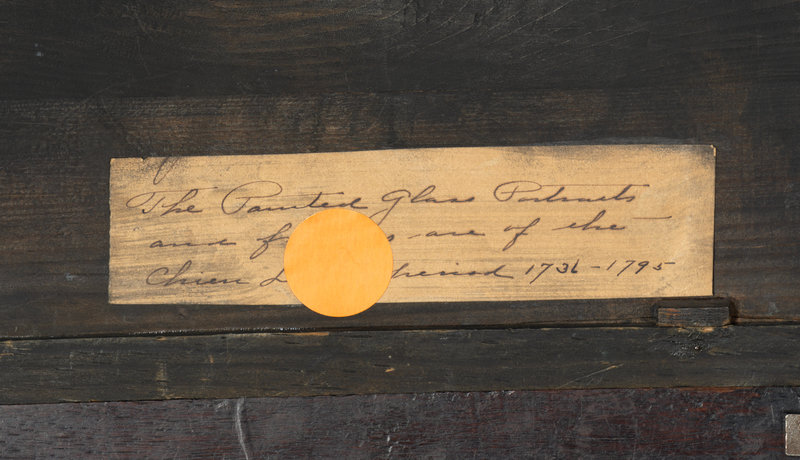 The Painted Glass Portraits
and are of the
Chien period 1736-1795